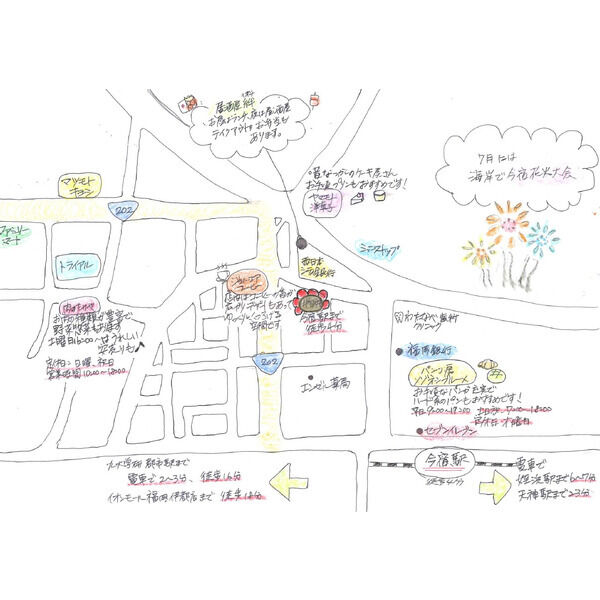 居酒屋 絆
お昼はランチ、夜は居酒屋
テイクアウトのお弁当も
あります。
7月には
海岸で今宿花火大会
マツモト
キヨシ
202
昔なつかしのケーキ屋さん
お手頃プリンもおすすめです!
ヤマモト
洋菓子
トライアル
西日本
シティ銀行
ミニストップ
お肉の種類が豊富で
野菜、惣菜もあります
土曜日16:00〜はうれしい
安売りも♪
定休日:日曜、祝日
営業時間10:00〜18:00
今宿駅まで
徒歩4分
クリニック
福岡銀行
202
エンゼル薬局
パン工房
お手頃なパンが充実で
ハード系のパンもおすすめです!
平日 9:00〜19:00
セブンイレブン
今宿駅
徒歩4分
九大学研都市駅まで
電車で2〜3分、徒歩16分
イオンモール福岡伊都店まで 徒歩18分
電車で
姪浜駅まで6〜7分
天神駅まで23分